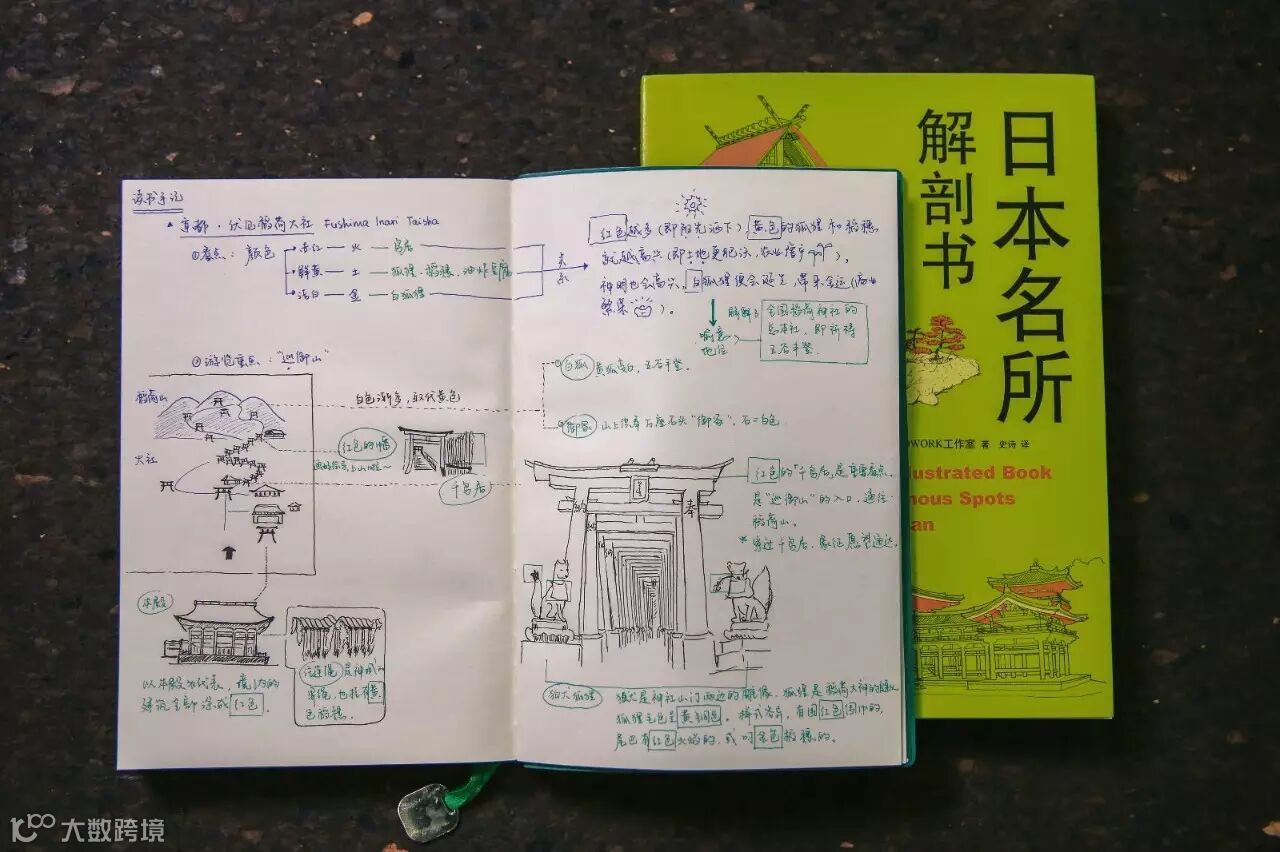 读书手记
京都·伏见稻荷大社 Fushima Inari Taisha
①看点:颜色
赤红 — 火 — 鸟居
鲜黄 — 土 — 狐狸、稻穗、油炸豆腐
洁白 — 金 — 白狐狸
关系
②游览重点:"巡御山"
稻荷山
大社
白色渐多,取代黄色
红色的幡
千鸟居
本殿
以本殿为代表,境内的
建筑全部涂成红色。
注连绳是神域
草绳,也挂着黄
色稻穗。
红色越多(即阳光洒下),黄色的狐狸和稻穗
就越高兴(即土地更肥沃,农业增产),
神明也会高兴,白狐狸便会诞生,带来金运(商业
繁荣)。
寓意
地位
全国稻荷神社的
总本社,即祈祷
五谷丰登.
白狐 黄狐变白,五谷丰登.
御冢 山上供奉万座石头"御冢",石=白色
红色的"千鸟居"是重要看点,
是"巡御山"的入口,通往
稻荷山。
* 穿过千鸟居,象征愿望通达.
奉
狛犬狐狸 狛犬是神社山门两边的雕像,狐狸是稻荷大神的
狐狸毛色呈黄铜色。样式各异,有围红色围巾的,
尾巴有红色火焰的,或叼金色稻穗的。
日本名所
解剖书
WORK工作室 著 史诗 译
lustrated Book
nous Spots
an
大数跨境